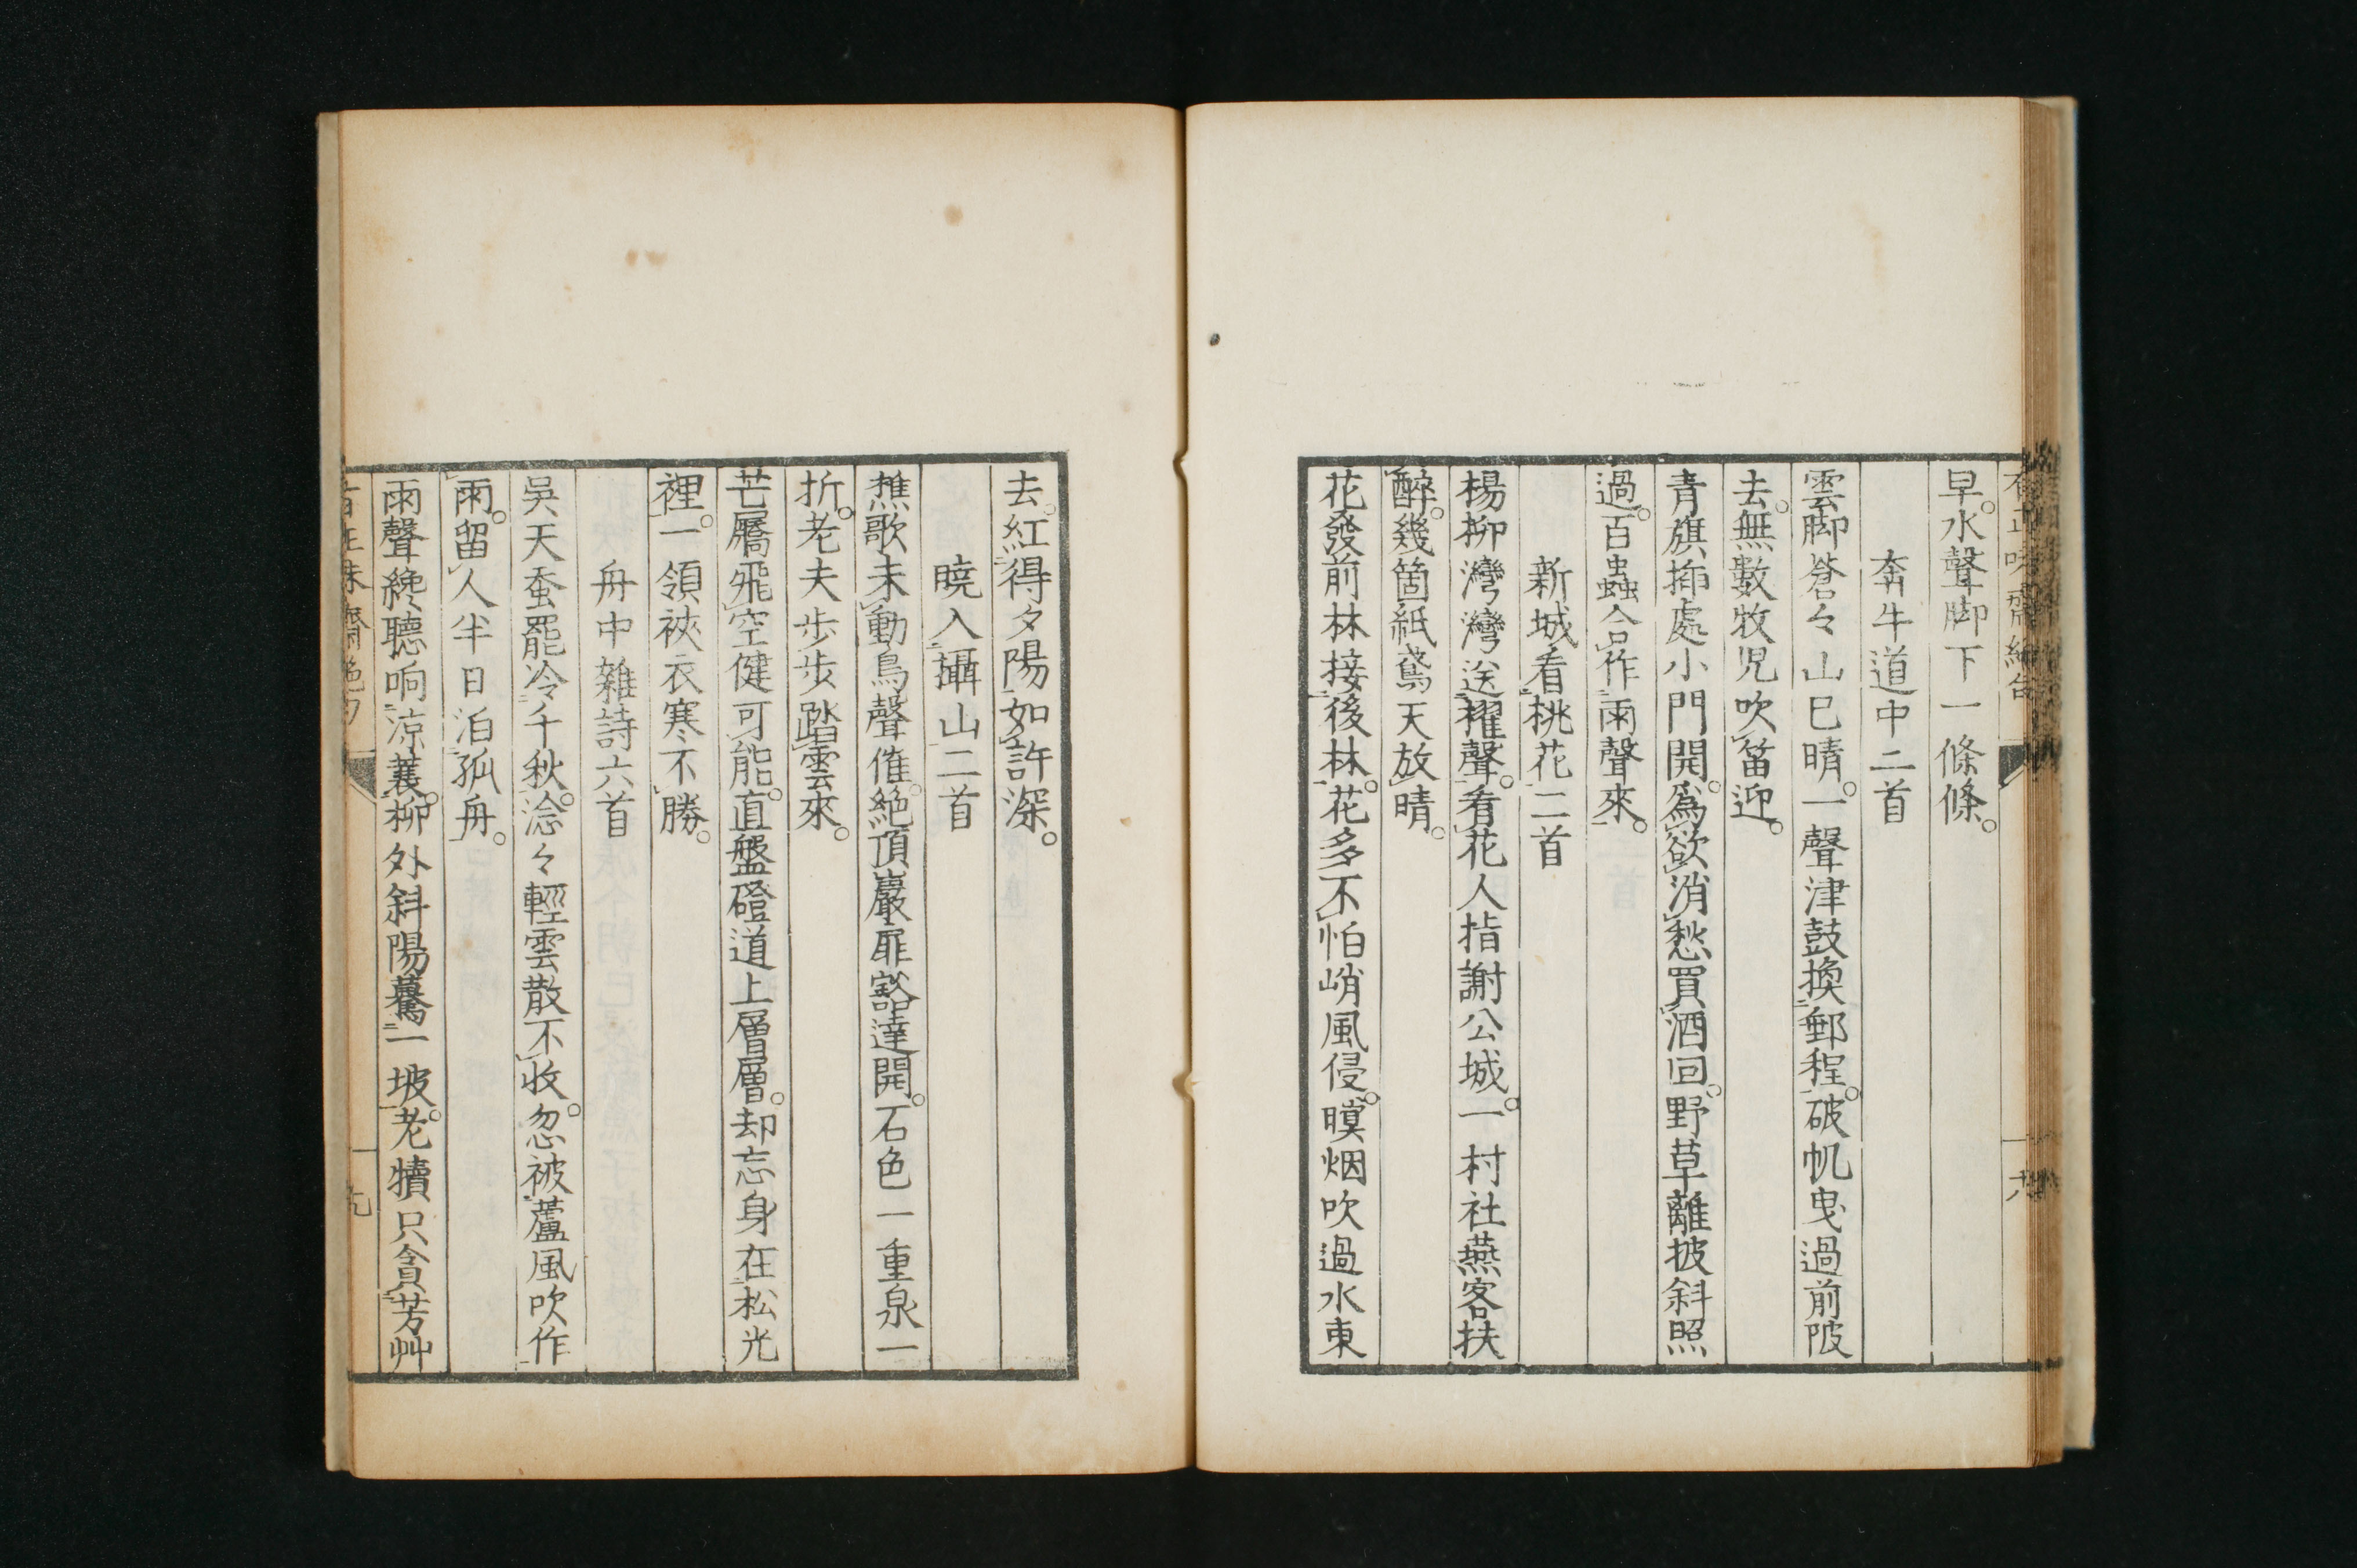 早。水聲脚下一條條。
奔牛道中二首
雲脚蒼々山巳晴。一聲津鼓換郵程。破帆曳過前陂
去。無數牧児吹笛迎。
青旗挿處小門開。爲欲消愁買酒回。野草離披斜照
過。百蟲合作雨聲來。
新城看桃花二首
楊柳灣灣送櫂聲。看花人指謝公城。一村社燕客扶
醉。幾箇紙鳶天放晴。
花發前林接後林。花多不怕峭風侵。暝烟吹過水東
去。紅得夕陽如許深。
曉入攝山二首
樵歌未動鳥聲催。絕頂巖扉谽達開。石色一重泉一
折。老夫步步踏雲來。
芒屩飛空健可能。直盤磴道上層層。却忘身在松光
裡。一領裌衣寒不勝。
舟中雜詩六首
吳天蚕罷冷千秋。淰々輕雲散不收。忽被蘆風吹作
雨。留人半日泊孤舟。
雨聲纔聽响涼蓑。柳外斜陽驀一坡。老犢只貪芳艸